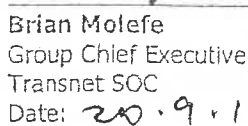 Brian Molefe
Group Chief Executive
Transnet SOC
Date: 20.9.1